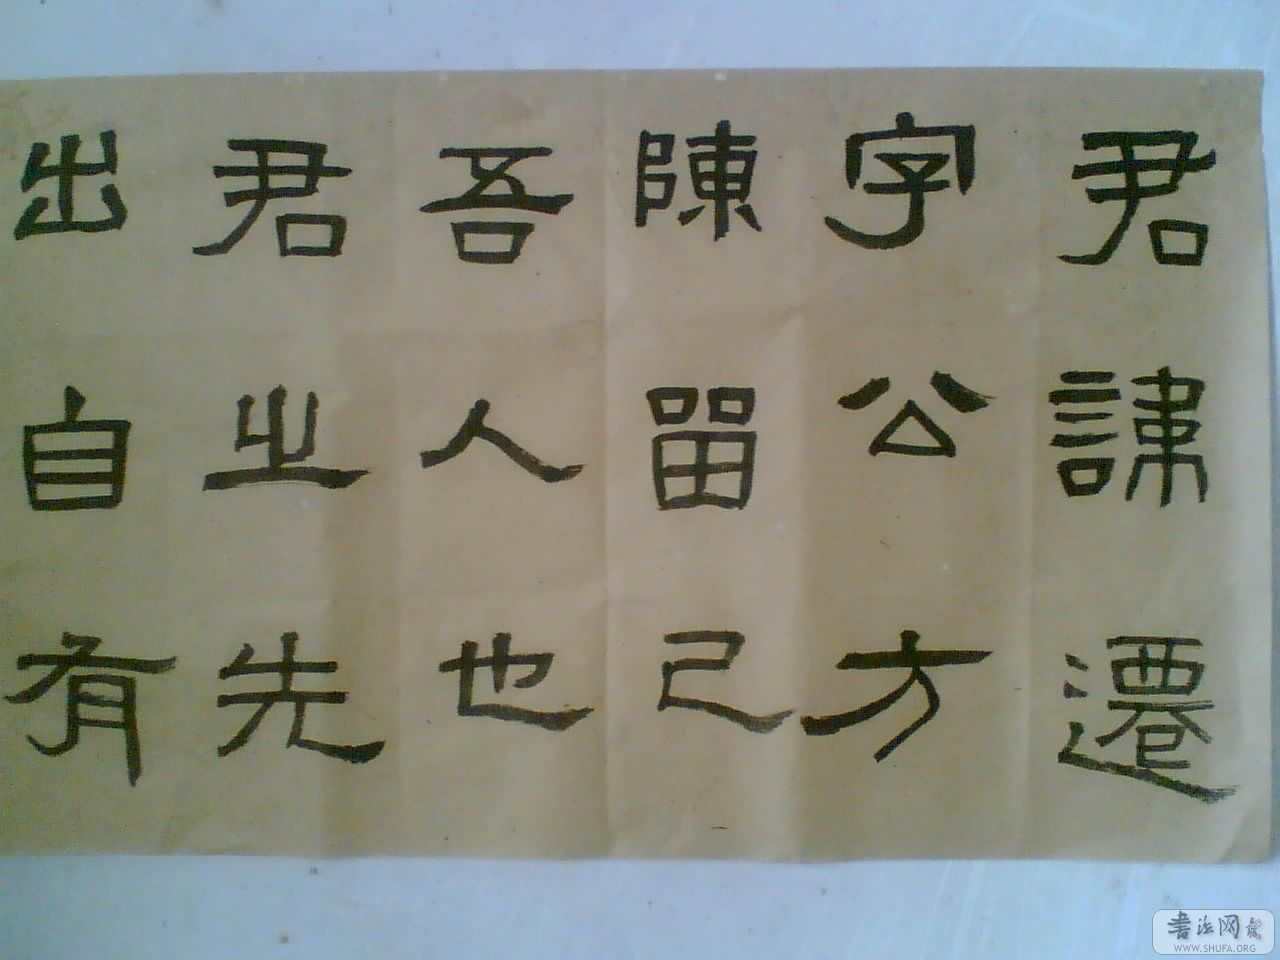 君諱遷
字公方
陳留己
吾人也
君之先
出自有
書法网
WWW.SHUFA.ORG